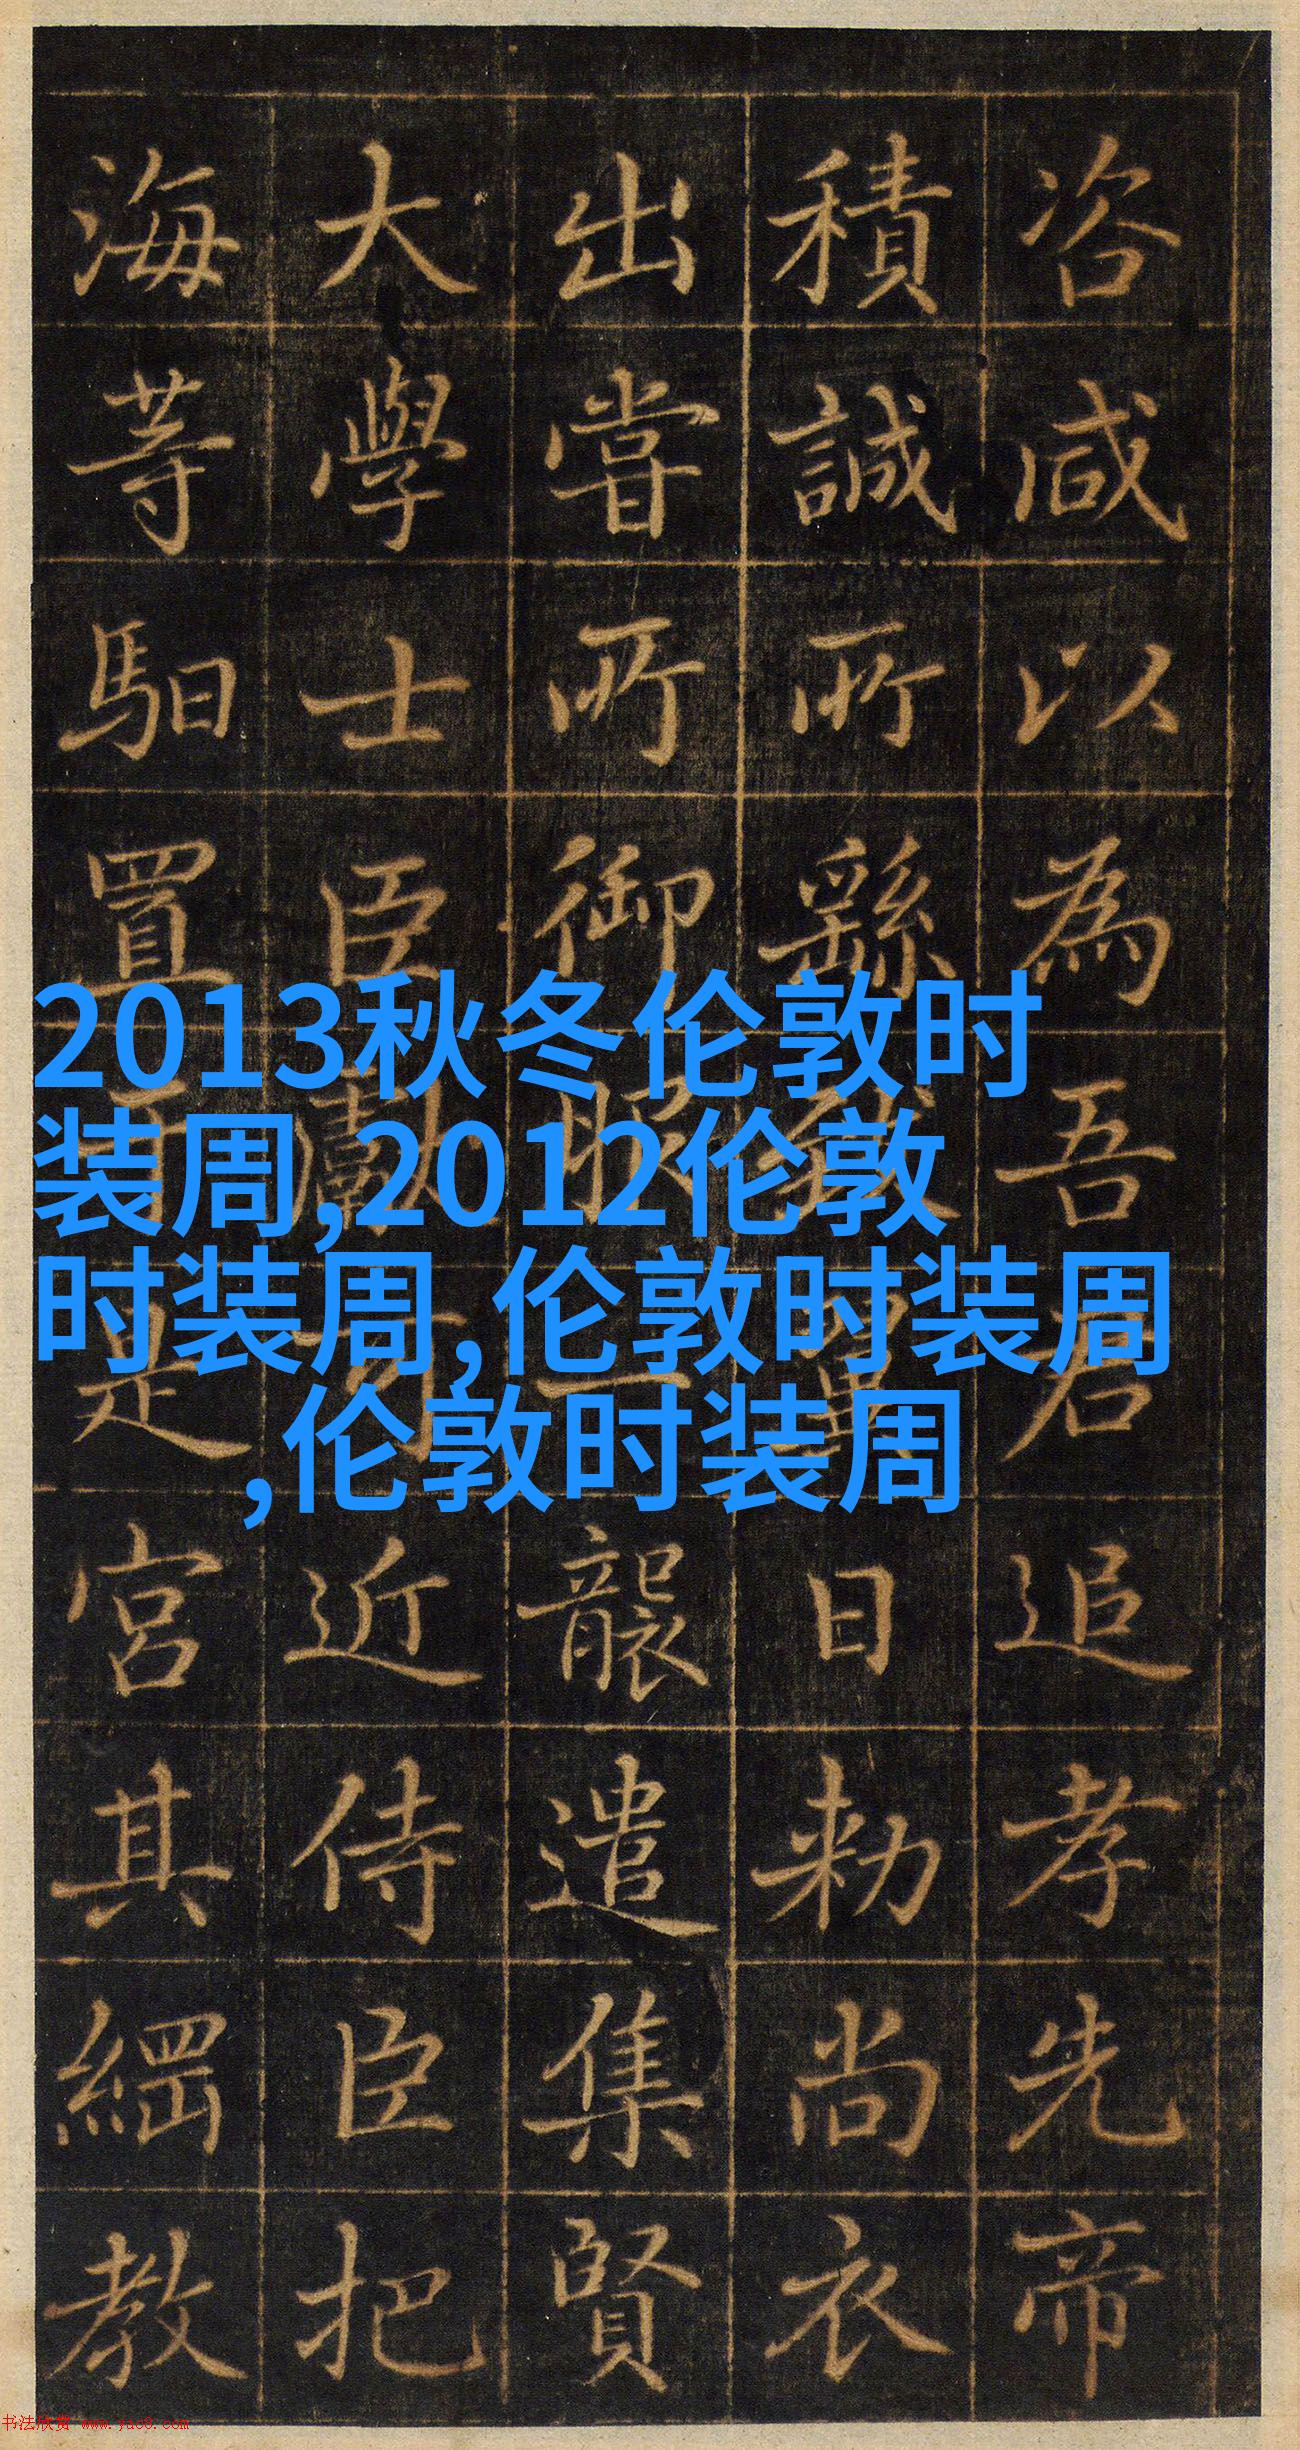 咨咸以為吾君追孝先帝
積誠所繇翼日勑尚衣
出嘗所御服一襲遣集賢
大學士臣獻近侍臣把
海等馹置于是宮其綱教
2013秋冬伦敦时
装周,2012伦敦
时装周,伦敦时装周
,伦敦时装周
书法欣赏 www.yac8.com